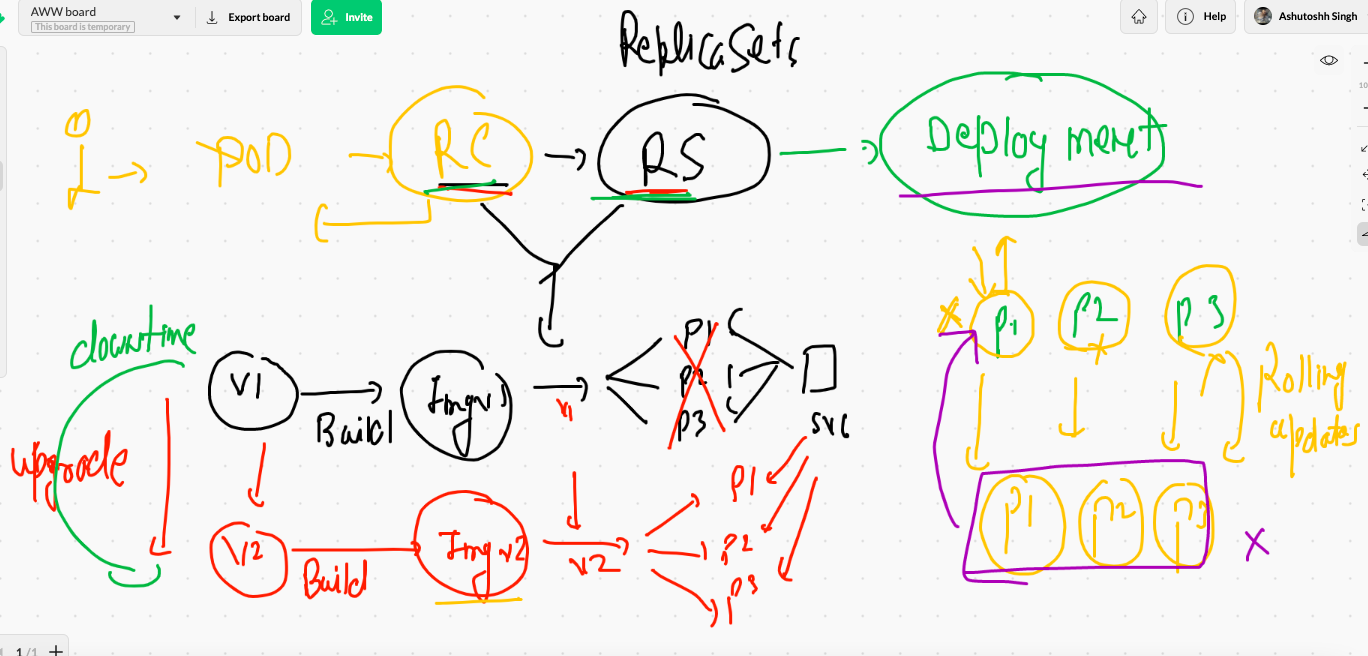 AWW board
This board is temporary
Export board
Invite
Help
Ashutoshh Singh
ReplicaSets
POD
RC
RS
Deployment
downtime
upgrade
V1
Build
Imgv1
V1
P1
P2
P3
svc
V2
Build
Imgv2
V2
P1
P2
P3
P1
P2
P3
Rolling
updates
P1
P2
P3
X
1/1